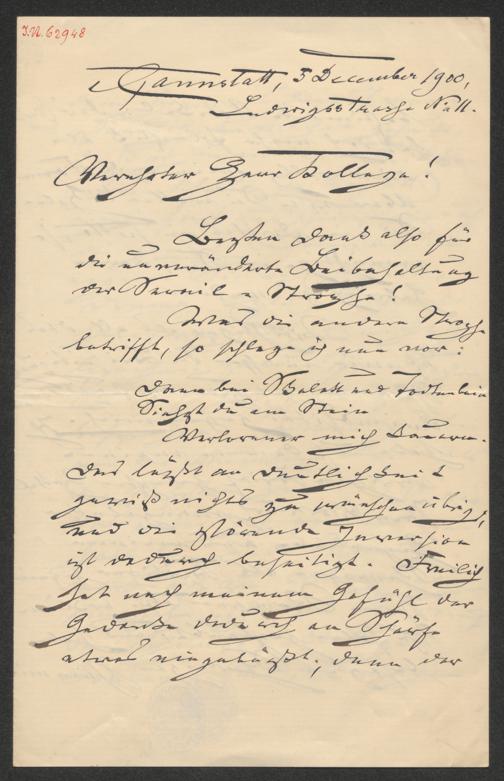 J.N. 62948
Cannstatt, 3 December 1900,
Ludwigsstrasse No 11.
Verehrter Herr Kollege!
Besten Dank also für
die unveränderte Beibehaltung
der Servil-Strophe!
Was die andere Strophe
betrifft, so schlage ich nun vor:
Dann bei Skelett und Todtenbein
Siehst du am Stein
Verlorener mich kauern.
Das läßt an Deutlichkeit
gewiß nichts zu wünschen übrig,
und die störende Inversion
ist dadurch beseitigt. Freilich
hat nach meinem Gefühl der
Gedanke dadurch an Schärfe
etwas eingebüßt; denn der